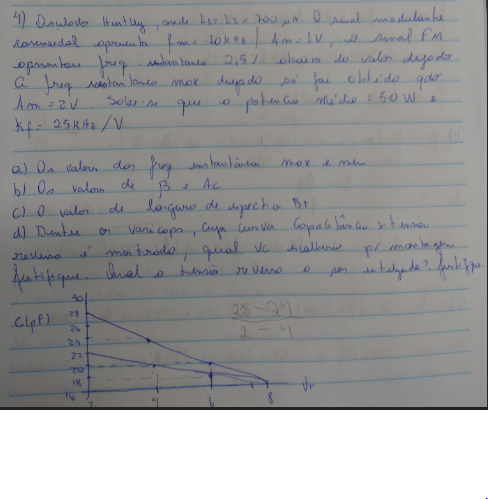 4) Oscilador Hartley, onde L1=L2=700 µH O sinal modulante
cossenoidal apresenta fm=10KHz/Am=1V, e o sinal FM
apresentou freq. instantânea 2,5% abaixo do valor desejado
A freq instantânea max desejada só foi obtida qdo
Am=2V. Sabe-se que a potência Média=50W e
Kf=25KHz/V
a) Os valores das freq instantâneas max e min
b) Os valores de β e Ac
c) O valor de largura de espectro BT
d) Dentre os varicaps, cuja curva Capacitância x tensão
reversa é mostrada, qual vc escolheria p/ montagem
justifique. Qual a tensão reversa a ser utilizada? Justifique
C(pF)
30
28
26
24
22
20
18
16
2
4
6
8
Vr
28-24
2-4